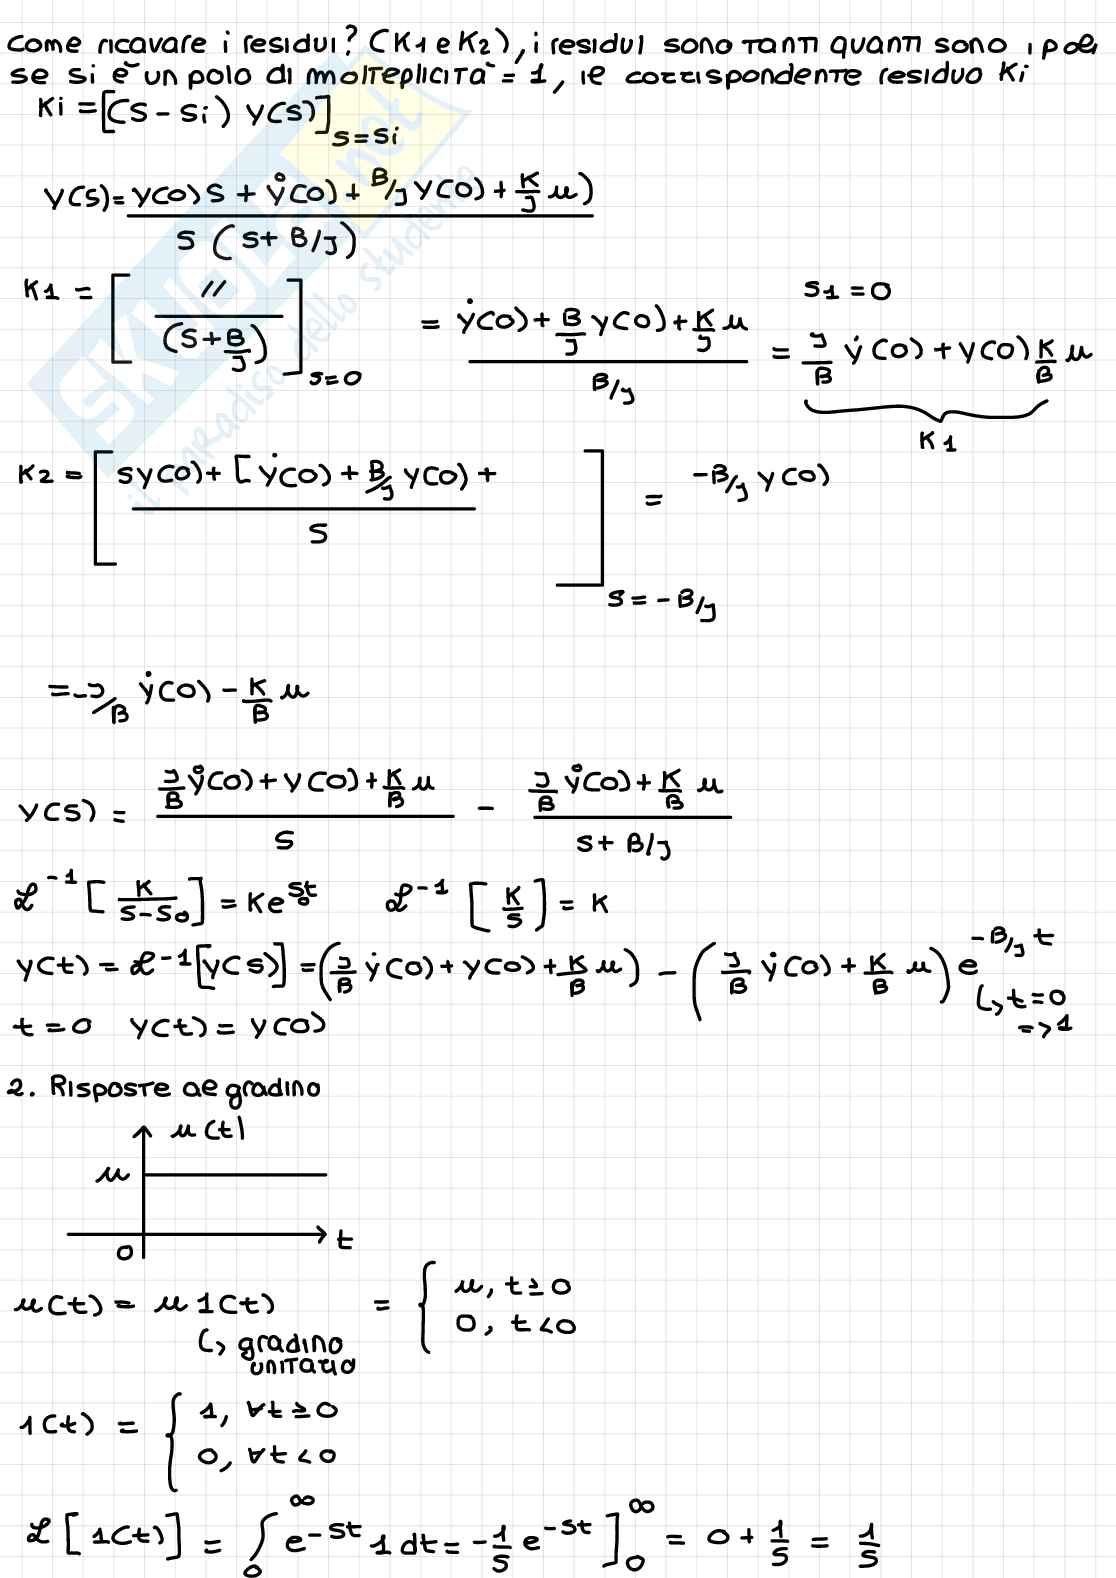 Come ricavare i residui? (K1 e K2), i residui sono tanti quanti sono i poli
se si è un polo di molteplicità = 1, il corrispondente residuo Ki
Ki = [(s - si) y(s)] s=si
y(s) = y(0)s + ẏ(0) + B/J y(0) + K/J u) / s (s + B/J)
K1 = [ // / (s + B/J) ] s=0 = ẏ(0) + B/J y(0) + K/J u / B/J = J/B ẏ(0) + y(0) K/B u
s1 = 0
K1
K2 = [ sy(0) + [ẏ(0) + B/J y(0) + / s ] s = -B/J = -B/J y(0)
= -J/B ẏ(0) - K/B u
y(s) = J/B ẏ(0) + y(0) + K/B u / s - J/B ẏ(0) + K/B u / s + B/J
ℒ^-1 [K / s-s0] = K e^s0t ℒ^-1 [K/s] = K
y(t) = ℒ^-1 [y(s)] = (J/B ẏ(0) + y(0) + K/B u) - (J/B ẏ(0) + K/B u) e^-B/J t
↳ t=0
=> 1
t = 0 y(t) = y(0)
2. Risposte al gradino
u(t)
u
0 t
u(t) = u 1(t) = { u, t ≥ 0
0, t < 0
↳ gradino
unitario
1(t) = { 1, ∀t ≥ 0
0, ∀t < 0
ℒ [1(t)] = ∫0^∞ e^-st 1 dt = -1/s e^-st ]0^∞ = 0 + 1/s = 1/s
SKUOLA.net
il paradiso dello studente